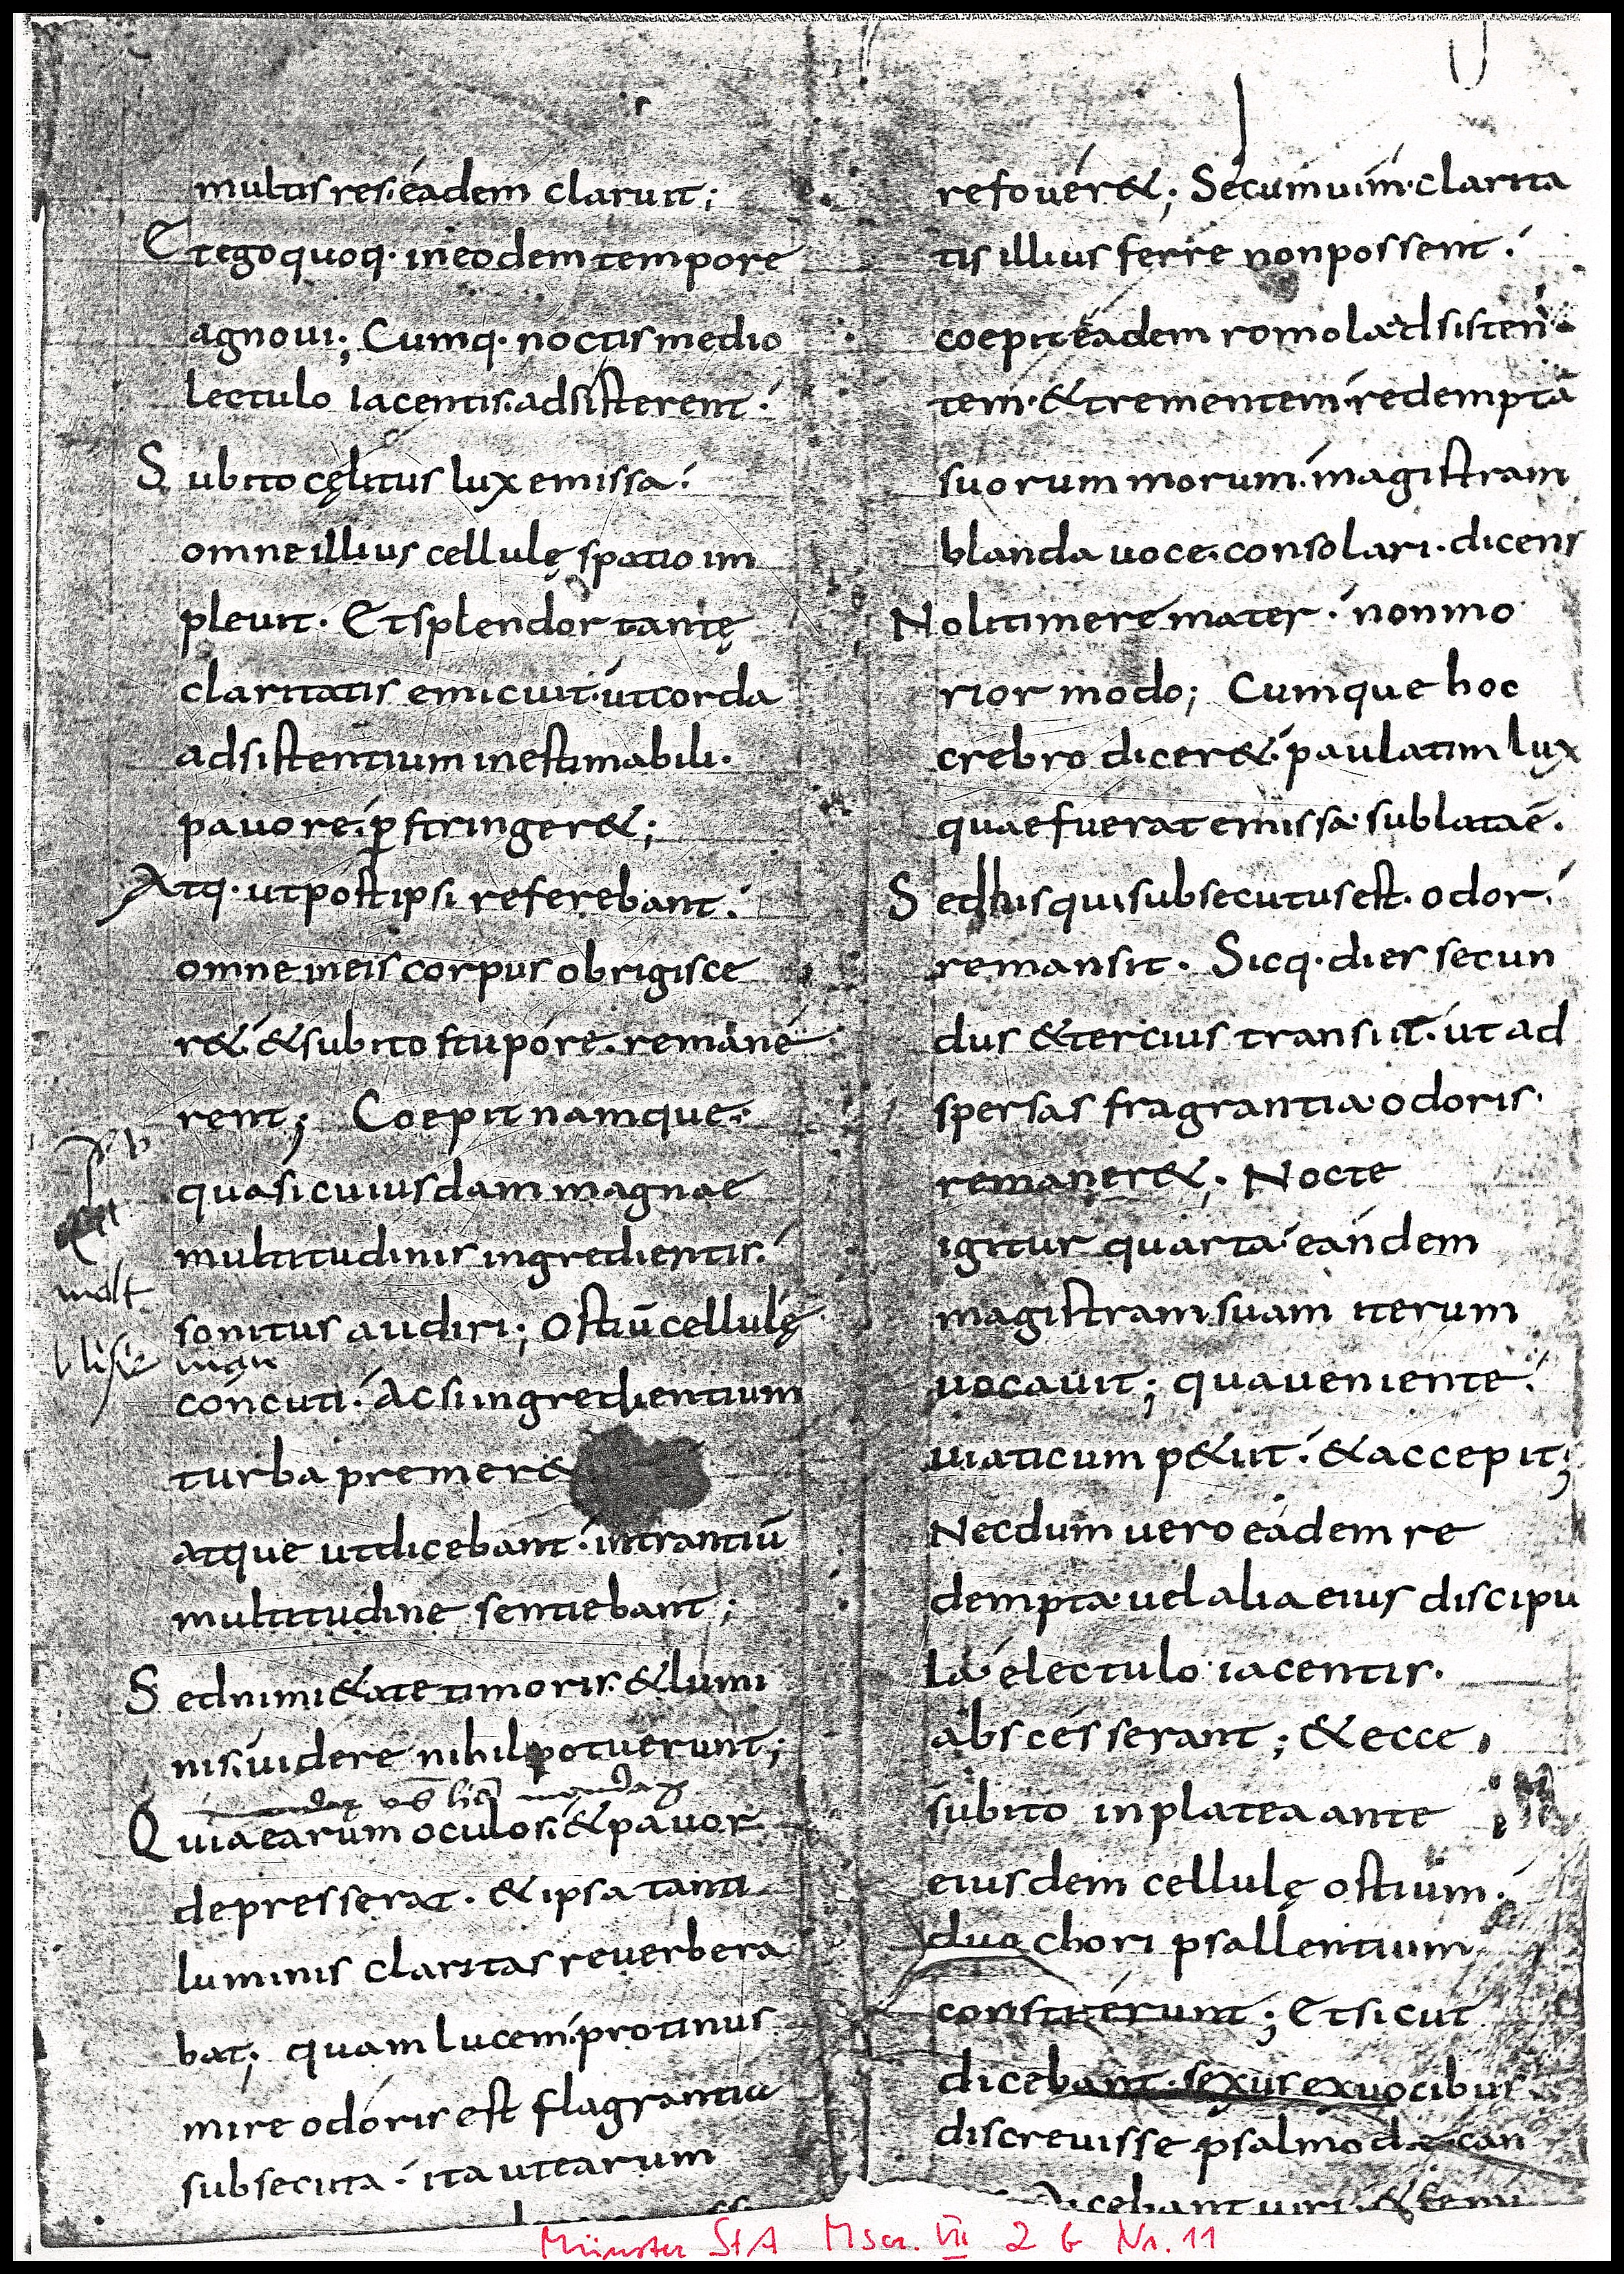 multis res eadem claruit;
Et ego quoq· in eodem tempore
agnoui; Cumq· noctis medio
lectulo iacentis· adsisterent·
Subito cęlitus lux emissa·
omne illius cellulę spatio im
pleuit· Et splendor tantę
claritatis emicuit· ut corda
adsistentium inestimabili·
pauore· p̱stringer&;
Atq· ut post ipsi referebant·
omne in eis corpus obrigisce
r&· & subito stupore· remane
rent; Coepit namque·
quasi cuiusdam magnae
multitudinis ingredientis·
sonitus audiri; Ostiū cellulę
concuti· Ac si ingredientium
turba premer&
atque ut dicebant· intrantiū
multitudine sentiebant;
Sed nimi&ate timoris· & lumi
nis· uidere nihil potuerunt;
Quia earum oculos· & pauor
depresserat· & ipsa tanti
luminis claritas reuerbera
bat; quam lucem· protinus
mire odoris est flagrantia
subsecuta· ita ut earum
refouer&; Sed cum uim· clarita
tis illius ferre non possent·
coepit eadem romola· adsisten
tem· & trementem· redemptā
suorum morum· magistram
blanda uoce· consolari· dicens
Noli timere mater· non mo
rior modo; Cumque hoc
crebro dicer&· paulatim lux
quae fuerat emissa· sublata ē·
Sed his qui subsecutus est· odor·
remansit· Sicq· dies secun
dus & tercius transiit· ut ad
spersas fragrantia· odoris·
remaner&· Nocte
igitur quarta· eandem
magistram suam iterum
uocauit; qua ueniente·
uiaticum p&iit· & accepit;
Necdum uero eadem re
dempta· uel alia eius discipu
la· e lectulo· iacentis·
abscesserant; & ecce
subito in platea ante
eiusdem cellulę ostium·
duo chori psallentium
constiterunt; Et sicut
dicebant· sexus ex uocibus·
discreuisse psalmodię can
dicebant uiri· & femi
Münster StA Mscr. VII 2 b Nr. 11